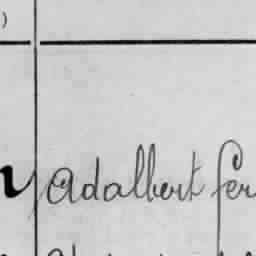 )
Adalbert Fer